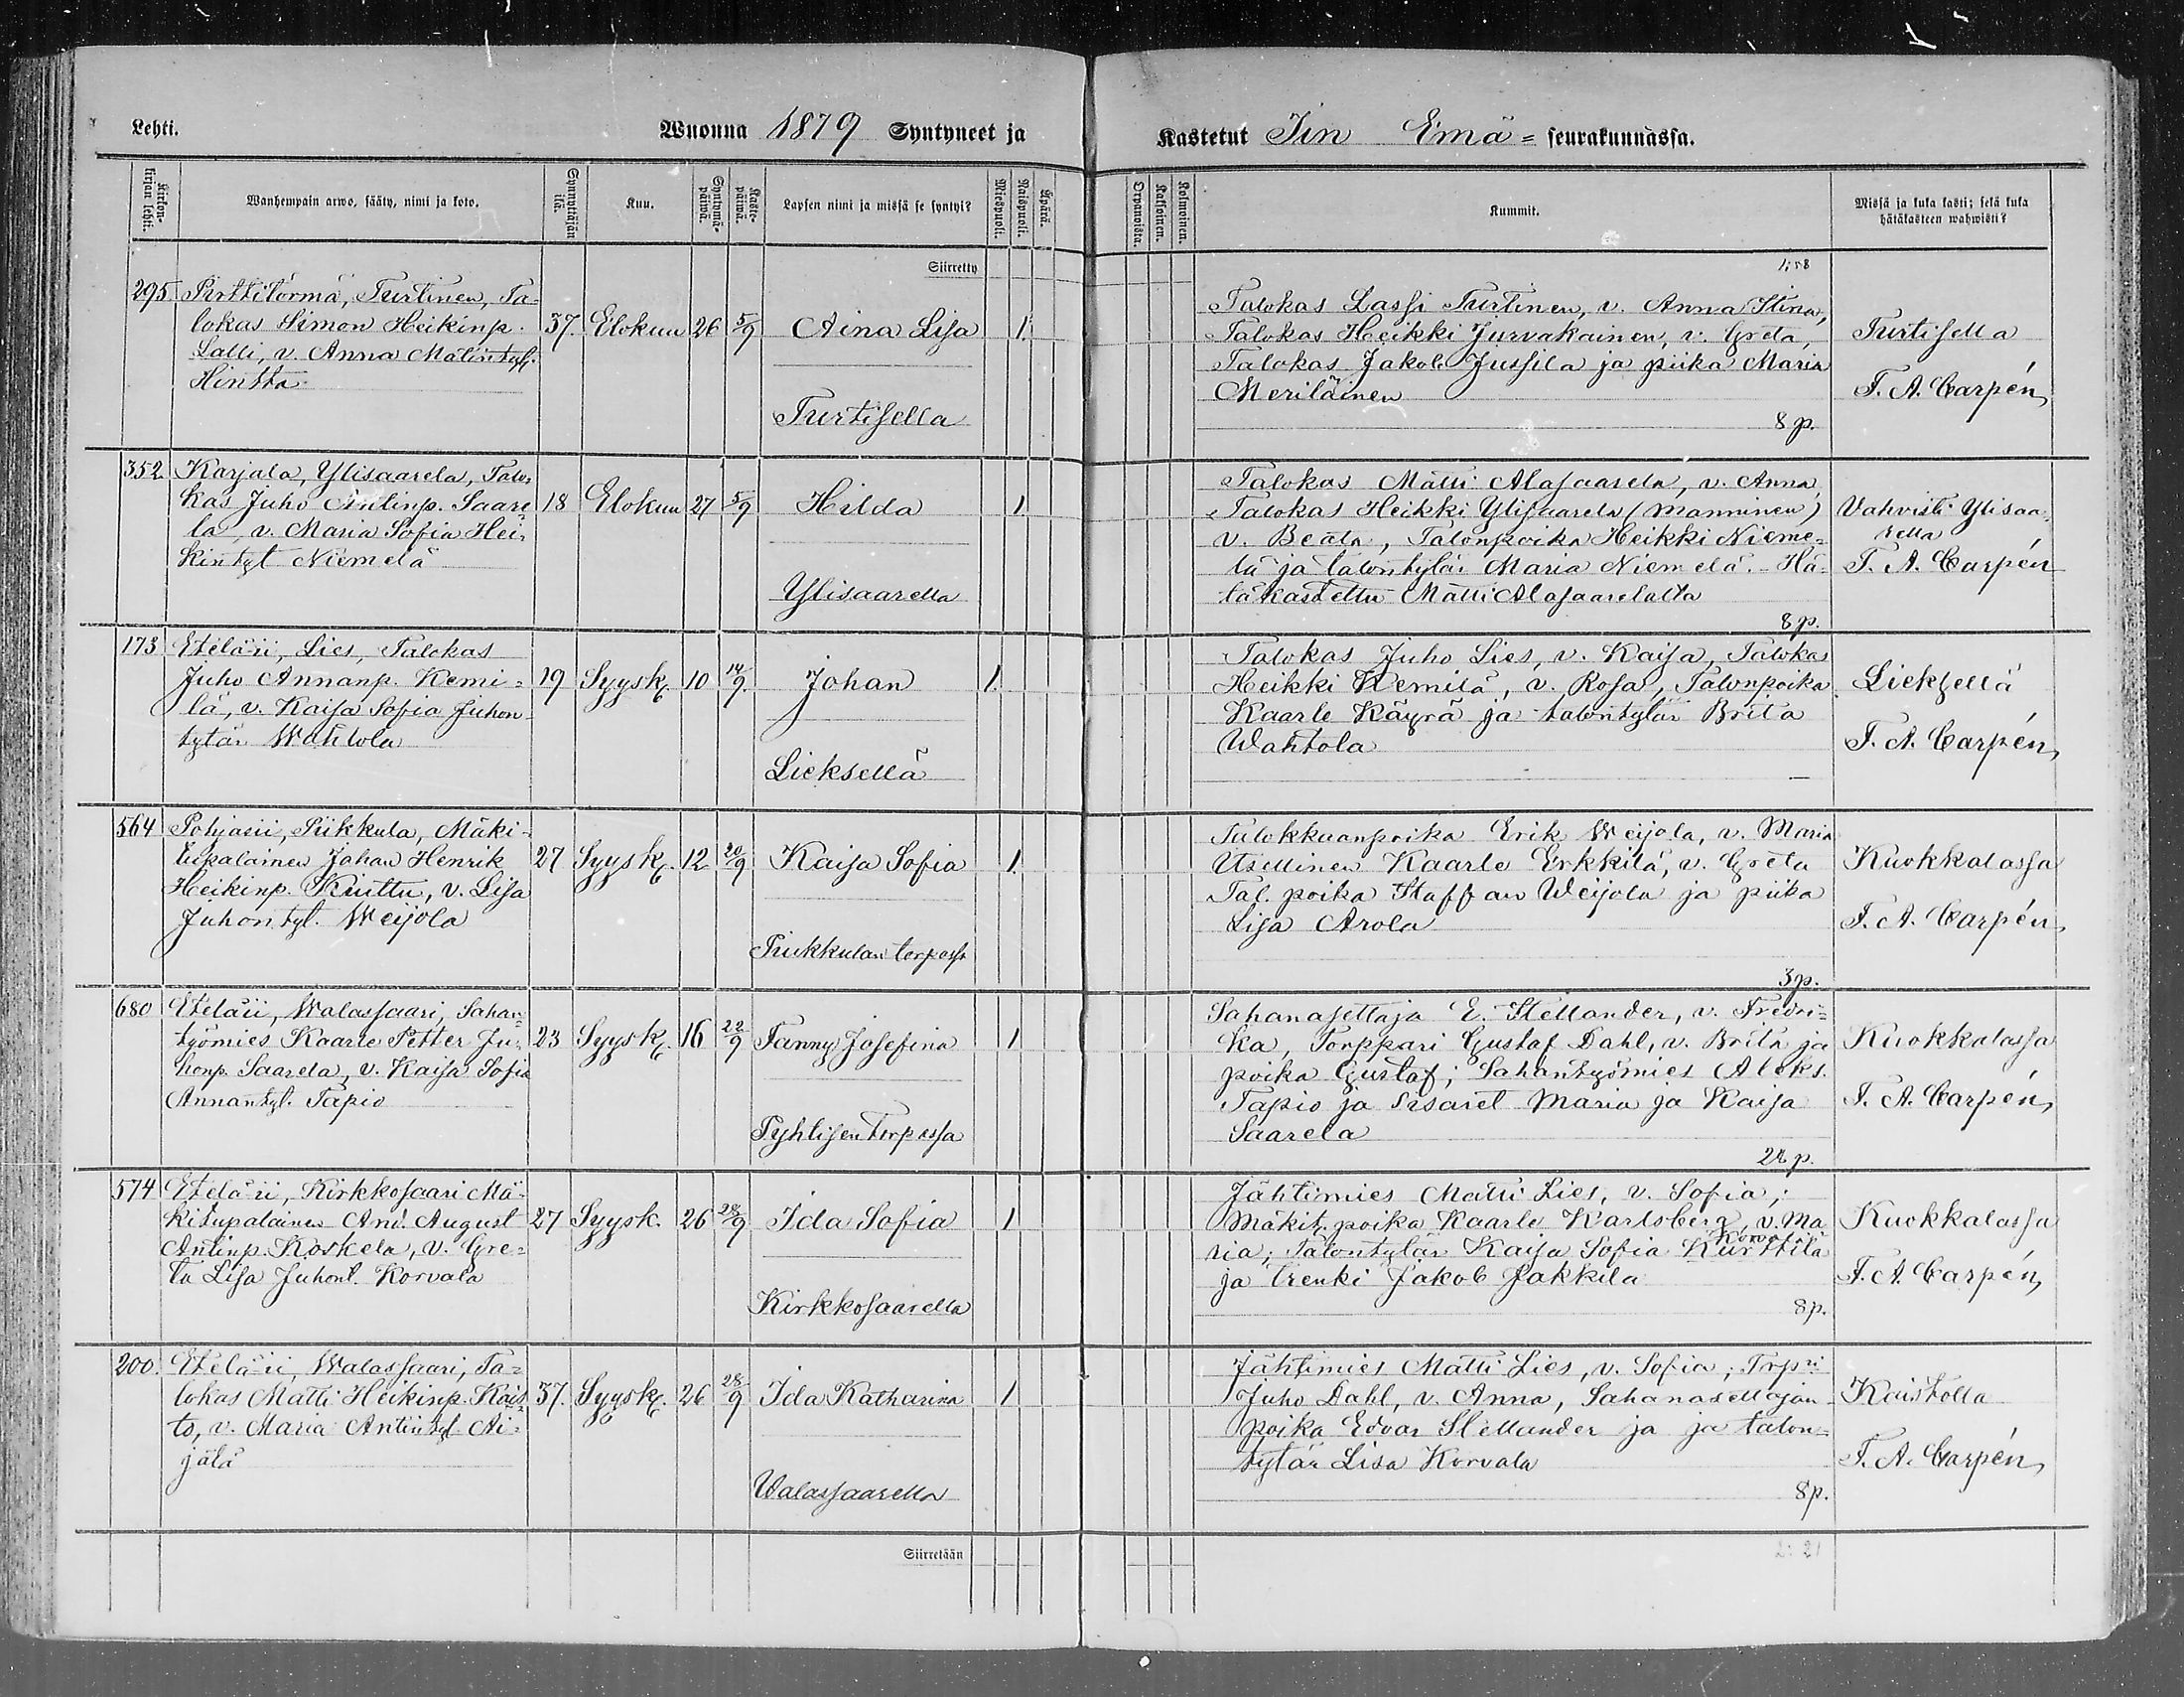 Lehti.
Wuonna 1879 Syntyneet ja
Kastetut Iin Emä= seurakunnassa.
Kirkon-
kirjan lehti.
Wanhempain arwo, sääty, nimi ja koto.
Synnyttäjän
ikä.
Kuu.
Syntymä-
päiwä.
Kaste-
päiwä.
Lapsen nimi ja missä se syntyi?
Miespuoli.
Naispuoli.
Äpärä.
Orpanoista.
Kaksoinen.
Kolmoinen.
Kummit.
Missä ja kuka kasti; sekä kuka
hätäkasteen wahwisti?
Siirretty
1,58
295 Pirttitörmä, Turtinen, Ta-
lokas Simon Heikinp.
Lalli, v. Anna Matintyt.
Hintta
37. Elokuu 26 5/9 Aina Lisa 1.
Turtisella
Talokas Lassi Turtinen, v. Anna Stina,
Talokas Heikki Jurvakainen, v. Greta,
Talokas Jakob Jussila ja piika Maria
Meriläinen
8 p.
Turtisella
F. A. Carpén
352 Karjala, Ylisaarela, Talo-
kas Juho Antinp. Saare-
la, v. Maria Sofia Hei-
kintyt Niemelä
18 Elokuu 27 5/9 Hilda 1.
Ylisaarella
Talokas Matti Alasaarela, v. Anna
Talokas Heikki Ylisaarela (Manninen)
v. Beata, Talonpoika Heikki Nieme-
lä ja talontytär Maria Niemelä. - Hä-
täkastettu Matti Alasaarelalta
8 p.
Vahvisti Ylisaa-
rella
F. A. Carpén
173 Etelä-ii, Lies, Talokas
Juho Annanp. Kemi=
lä, v. Kaisa Sofia Juhon-
tytär Wahtola
19 Syysk. 10 14/9. Johan 1.
Lieksellä
Talokas Juho Lies, v. Kaisa, Talokas
Heikki Kemilä, v. Rosa, Talonpoika
Kaarle Käyrä ja talontytär Brita
Wahtola
Lieksellä
F. A. Carpén
564 Pohjasii, Piikkula, Mäki-
tupalainen Johan Henrik
Heikinp. Kiuttu, v. Lisa
Juhontyt. Weijola
27 Syysk. 12 20/9 Kaisa Sofia 1
Piukkulan torpassa
Tulokkaanpoika Erik Weijola, v. Maria
Itsellinen Kaarle Erkkilä, v. Greta
Tal. poika Staffan Weijola ja piika
Lisa Arola
3 p.
Kuokkalassa
F. A. Carpén
680 Etelä-ii, Walassaari, Sahan-
työmies Kaarle Petter Ju-
honp. Saarela, v. Kaisa Sofia
Annantyt. Tapio
23 Syysk. 16 22/9 Fanny Josefina 1
Pyhtisen torpassa
Sahanasettaja E. Stellander, v. Fredri=
ka, Torppari Gustaf Dahl, v. Brita ja
poika Gustaf; Sahantyömies Aleks.
Tapio ja sisaret Maria ja Kaisa
Saarela
24 p.
Kuokkalassa
F. A. Carpén
574 Etelä-ii, Kirkkosaari Mä-
kitupalainen And. August
Antinp. Koskela, v. Gre=
ta Lisa Juhont. Korvala
27 Syysk. 26 28/9 Ida Sofia 1
Kirkkosaarella
Jähtimies Matti Lies, v. Sofia;
Mäkit. poika Kaarle Karlsberg, v. Ma
ria; Talontytär Kaisa Sofia Kurttila
ja trenki Jakob Jakkila
8 p.
Kuokkalassa
F. A. Carpén
200. Etelä-ii, Walassaari, Ta=
lokas Matti Heikinp. Kais-
to, v. Maria Antintyt. Ai-
jälä
37. Syysk. 26 28/9 Ida Katharina 1
Walassaarella
Jähtimies Matti Lies, v. Sofia; Trpri
Juho Dahl, v. Anna, Sahanasettajan
poika Edvar Stellander ja ja talon=
tytär Lisa Korvala
8 p.
Kaistolla
F. A. Carpén
Siirretään
2: 21